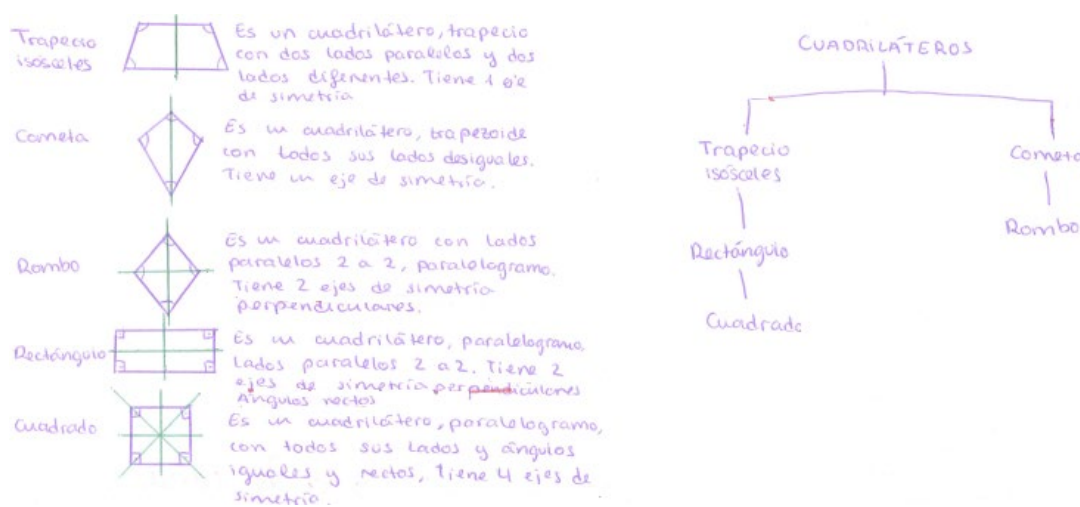 Trapecio
isósceles
Es un cuadrilátero, trapecio
con dos lados paralelos y dos
lados diferentes. Tiene 1 eje
de simetría
Cometa
Es un cuadrilátero, trapezoide
con todos sus lados desiguales.
Tiene un eje de simetría.
Rombo
Es un cuadrilátero con lados
paralelos 2 a 2, paralelogramo.
Tiene 2 ejes de simetría
perpendiculares.
Rectángulo
Es un cuadrilátero, paralelogramo.
Lados paralelos 2 a 2. Tiene 2
ejes de simetría perpendiculares
Ángulos rectos
Cuadrado
Es un cuadrilátero, paralelogramo,
con todos sus lados y ángulos
iguales y rectos, Tiene 4 ejes de
simetría.
CUADRILÁTEROS
Trapecio
isósceles
Cometa
Rectángulo
Rombo
Cuadrado